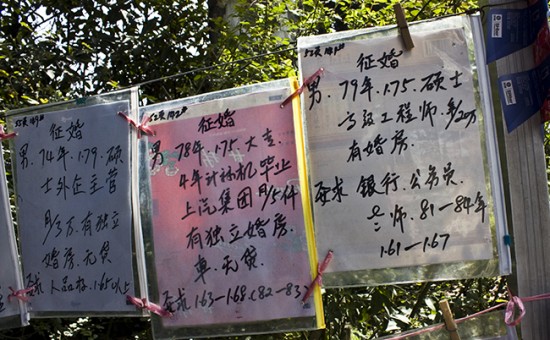 征婚
男.74年.1.79.硕
士外企主管
月/3万.有独立
婚房.无贷
要求 人品好.1.65以上
征婚
男.78年.1.75.大专
4年计祘机毕业
上汽集团月/5仟
有独立婚房.
車.无贷.
要求 1.63-1.68(82-83)
征婚
男.79年.1.75.硕士
高级工程师.
有婚房.
要求 银行.公务员.
老师.81-84年
1.61-1.67